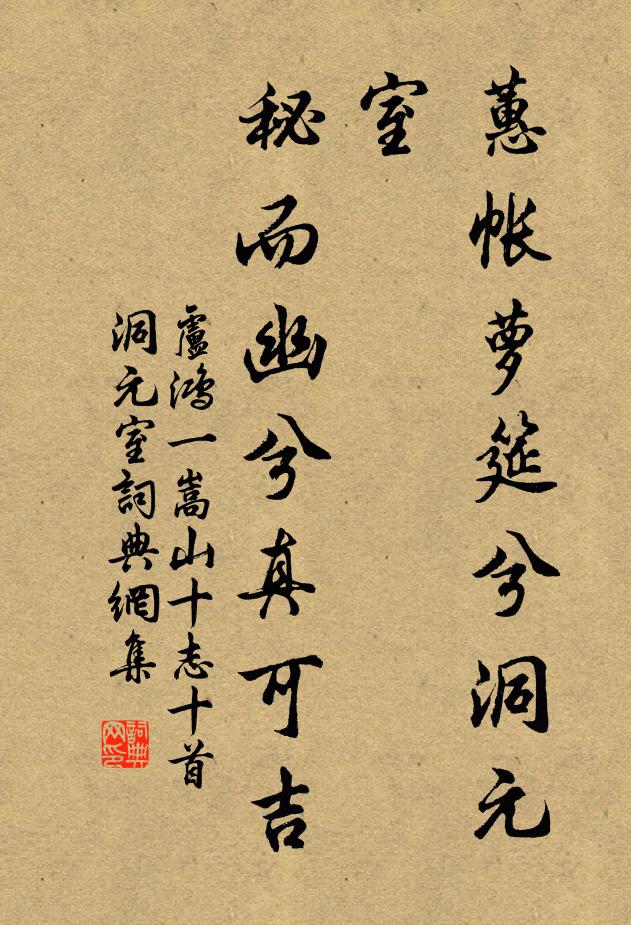 蕙帳萝筵兮洞元
室
秘而幽兮真可吉
盧鴻一嵩山十志十首
洞元室詞典網集
詞典
网印